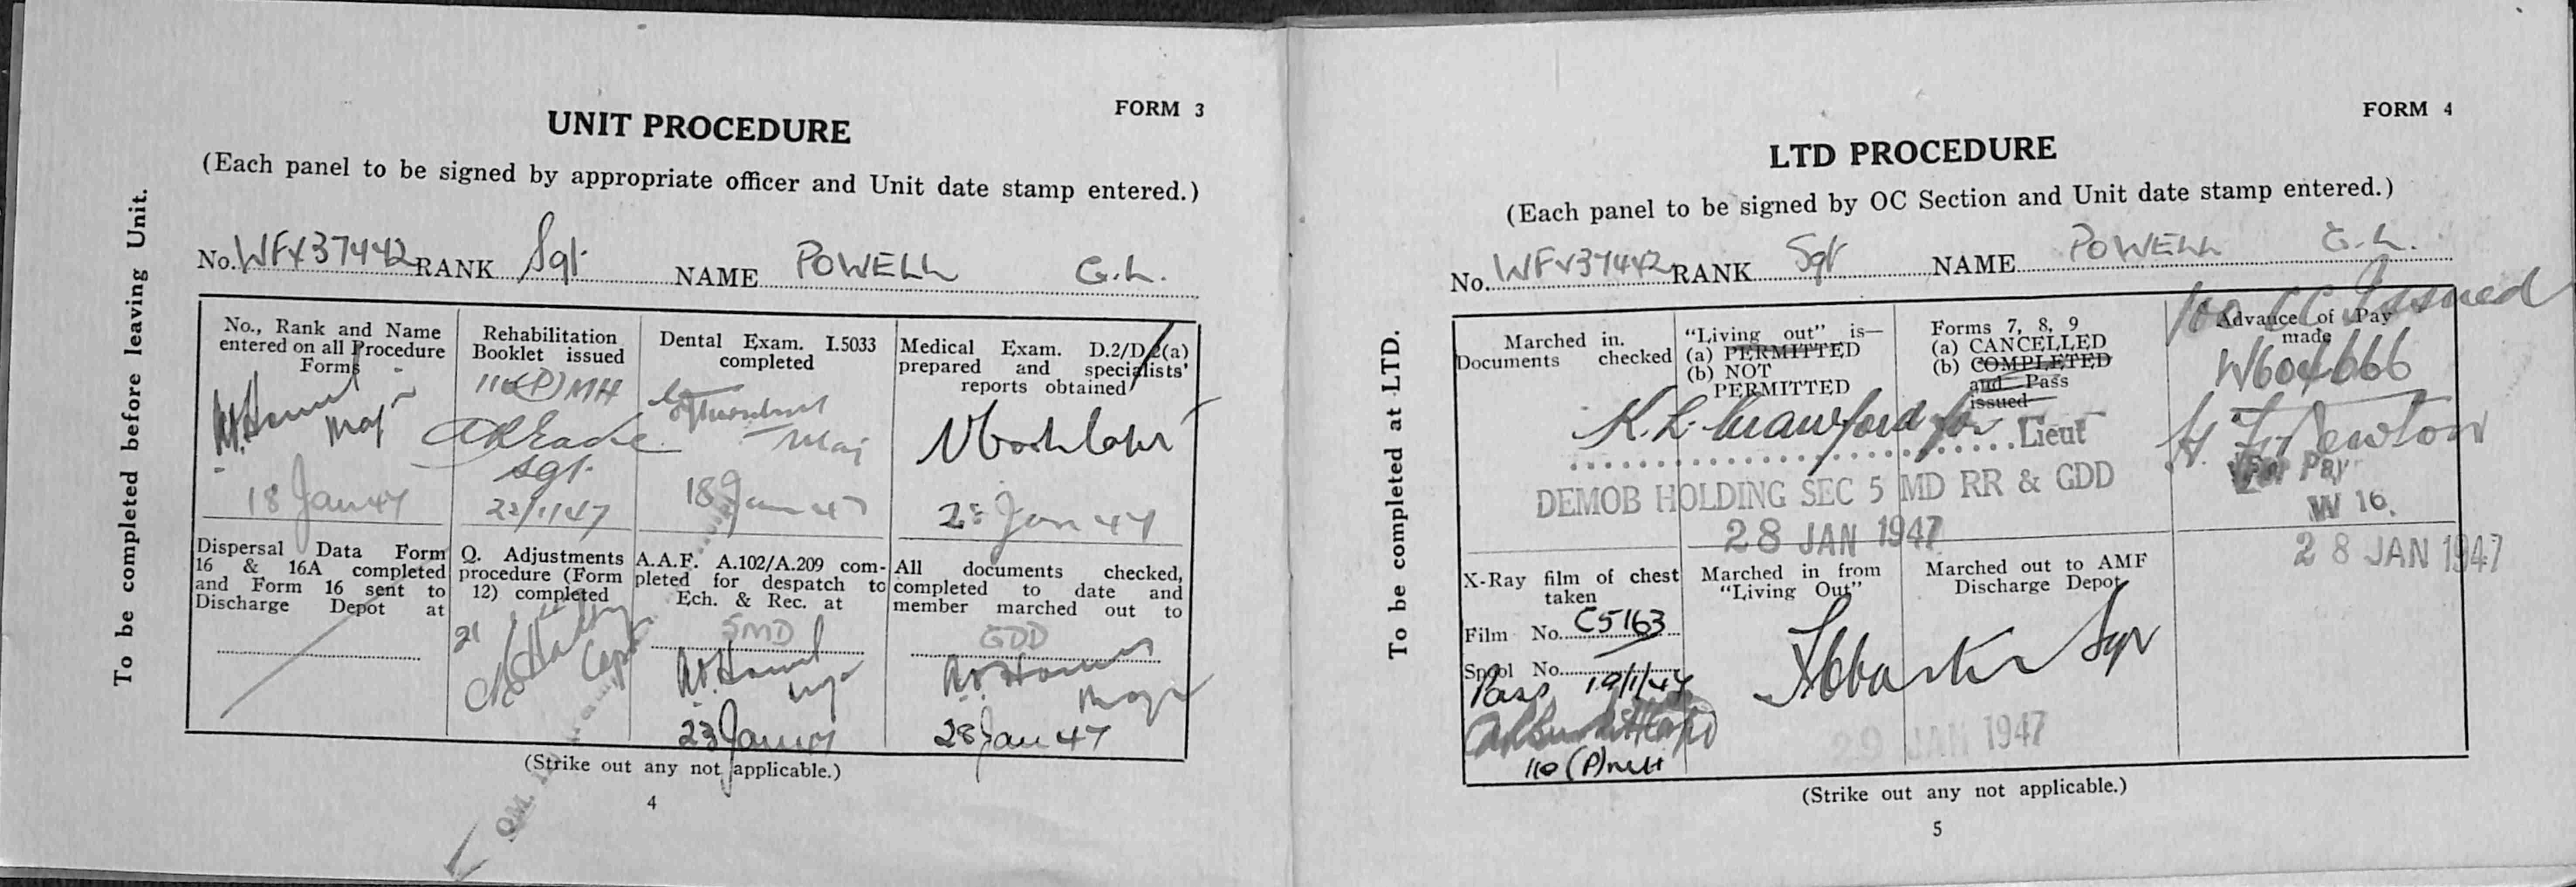 FORM 3
UNIT PROCEDURE
(Each panel to be signed by appropriate officer and Unit date stamp entered.)
To be completed before leaving Unit.
No. WFX37442 RANK Sgt. NAME POWELL G.L.
No., Rank and Name
entered on all Procedure
Forms
Maj
18 Jan 47
Rehabilitation
Booklet issued
110(P)MH
Sgt.
Dental Exam. I.5033
completed
Maj
18 Jan 47
Medical Exam. D.2/D.2(a)
prepared and specialists'
reports obtained
Jan 47
Dispersal Data Form
16 & 16A completed
and Form 16 sent to
Discharge Depot at
Q. Adjustments
procedure (Form
12) completed
21
Capt
A.A.F. A.102/A.209 com-
pleted for despatch to
Ech. & Rec. at
5MD
23 Jan 47
All documents checked,
completed to date and
member marched out to
GDD
Major
28 Jan 47
(Strike out any not applicable.)
4
FORM 4
LTD PROCEDURE
(Each panel to be signed by OC Section and Unit date stamp entered.)
To be completed at LTD.
No. WFX37442 RANK Sgt NAME POWELL G.L.
Marched in.
Documents checked
"Living out" is—
(a) PERMITTED
(b) NOT
PERMITTED
Forms 7, 8, 9
(a) CANCELLED
(b) COMPLETED
and Pass
issued
100 CC Issued
Advance of Pay
made
W604666
K. L. Crawford for
Lieut
H. F. Newton
For Pay
W 16.
DEMOB HOLDING SEC 5 MD RR & GDD
28 JAN 1947
28 JAN 1947
X-Ray film of chest
taken
Film No. C5163
Spool No.
Pass 19/1/47
110 (P) MH
Marched in from
"Living Out"
Marched out to AMF
Discharge Depot
Sgt
29 JAN 1947
(Strike out any not applicable.)
5